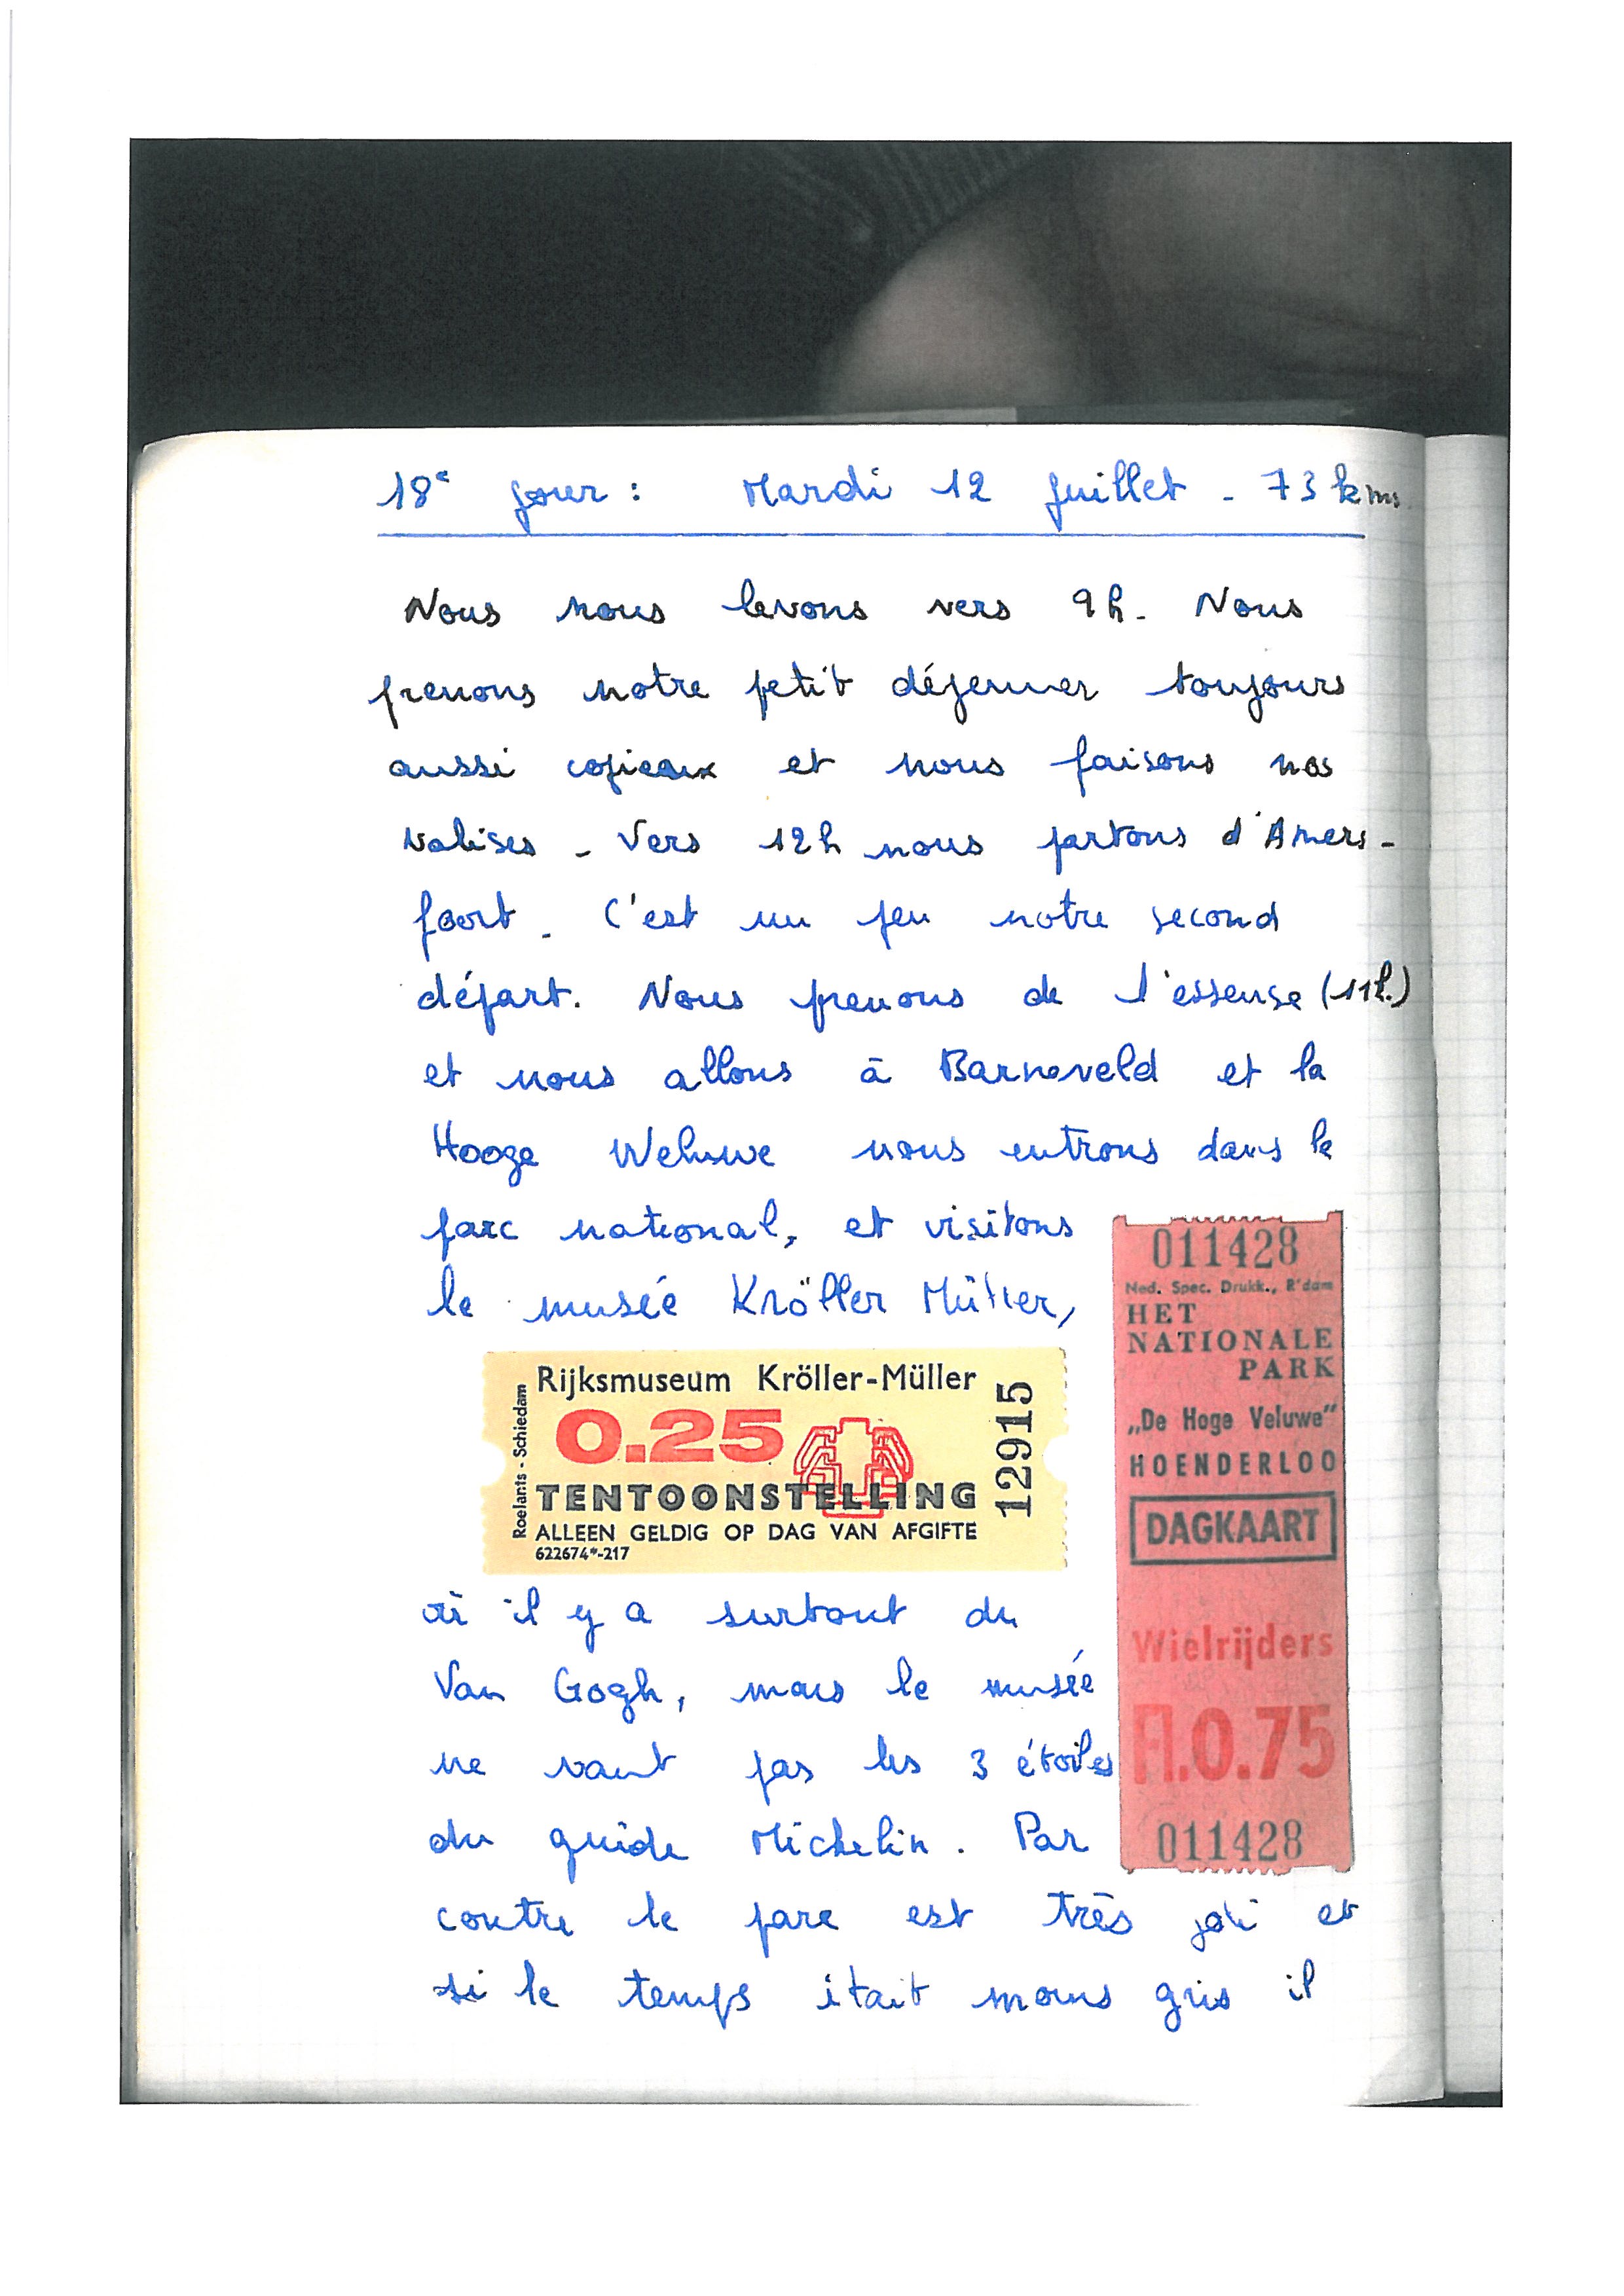 18e jour : Mardi 12 juillet - 73 kms
Nous nous levons vers 9h. Nous
prenons notre petit déjeuner toujours
aussi copieux et nous faisons nos
valises - Vers 12h nous partons d'Amers-
foort - C'est un peu notre second
départ. Nous prenons de l'essense (11l.)
et nous allons à Barneveld et la
Hooge Weluwe nous entrons dans le
parc national, et visitons
le musée Kröller Müller,
Rijksmuseum Kröller-Müller
0.25
TENTOONSTELLING
ALLEEN GELDIG OP DAG VAN AFGIFTE
622674*-217
Roelants - Schiedam
12915
011428
Ned. Spec. Drukk., R'dam
HET
NATIONALE
PARK
„De Hoge Veluwe"
HOENDERLOO
DAGKAART
Wielrijders
Fl.0.75
011428
où il y a surtout du
Van Gogh, mais le musée
ne vaut pas les 3 étoiles
du guide Michelin. Par
contre le parc est très joli et
si le temps était moins gris il